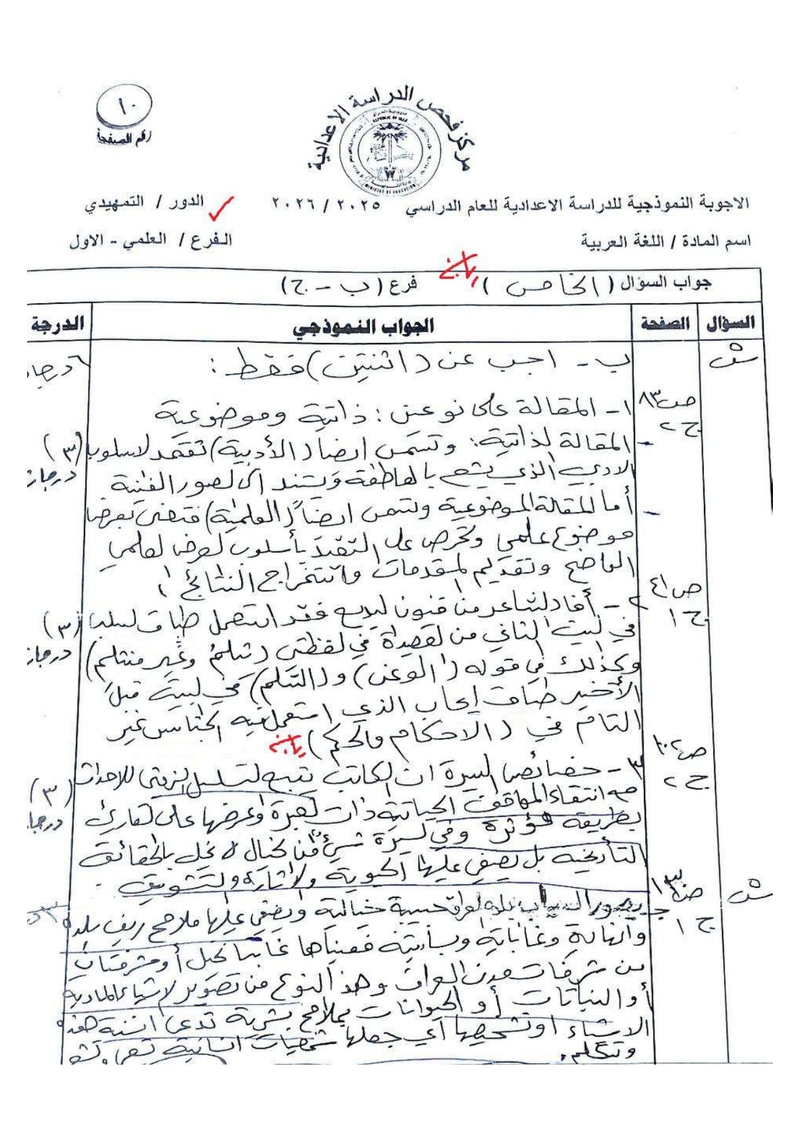 ١٠
رقم الصفحة
مركز فحص الدراسة الاعدادية
REPUBLIC OF IRAQ
MINISTRY OF EDUCATION
الاجوبة النموذجية للدراسة الاعدادية للعام الدراسي ٢٠٢٥ / ٢٠٢٦ الدور / التمهيدي
اسم المادة / اللغة العربية الفرع / العلمي - الاول
جواب السؤال (الخامس) فرع (ب - ج)
السؤال الصفحة الجواب النموذجي الدرجة
ب - اجب عن (اثنتين) فقط :
ص٨٣ ١- المقالة على نوعين : ذاتية وموضوعية
ج٢
- المقالة الذاتية: وتسمى ايضا (الأدبية) تعتمد الاسلوب (٣)
الادبي الذي يشع بالعاطفة ويستند الى الصور الفنية
- أما المقالة الموضوعية وتسمى ايضاً (العلمية) فتعنى بعرض
موضوع علمي وتحرص على التقيد بأسلوب العرض العلمي
الواضح وتقديم المقدمات واستخراج النتائج
ص٤١ ٢- أفاد الشاعر من فنون البديع فقد استعمل طباق السلب (٣)
ج١ في البيت الثاني من القصيدة في لفظتي (متثلم وغير متثلم)
وكذلك في قوله و( التثلم) في البيت قبل
الأخير طباق إيجاب الذي استعمل فيه الجناس غير
التام في (الاحكام والحكم)
ص١٠٢ ٣- خصائص السيرة ان الكاتب يتبع التسلسل الزمني للاحداث
ج٢ مع انتقاء المواقف الحياتية ذات العبرة وعرضها على القارئ (٣)
بطريقة مؤثرة وفي السيرة شيء من الخيال لا يخل بالحقائق
التأريخية بل يضفي عليها الحيوية والاثارة والتشويق
ص١٣ ج - يصور السياب حسية خيالية ويضفي عليها ملامح ريف بلده
ج١ وانهاره وغاباته وبساتينه
من شرفات مدن العراق وهذا النوع من تصوير الاشياء المادية
أو النباتات أو الحيوانات بملامح بشرية تدعى انسنة هذه
الاشياء او تشخيصها أي جعلها شخصيات انسانية
وتتكلم.